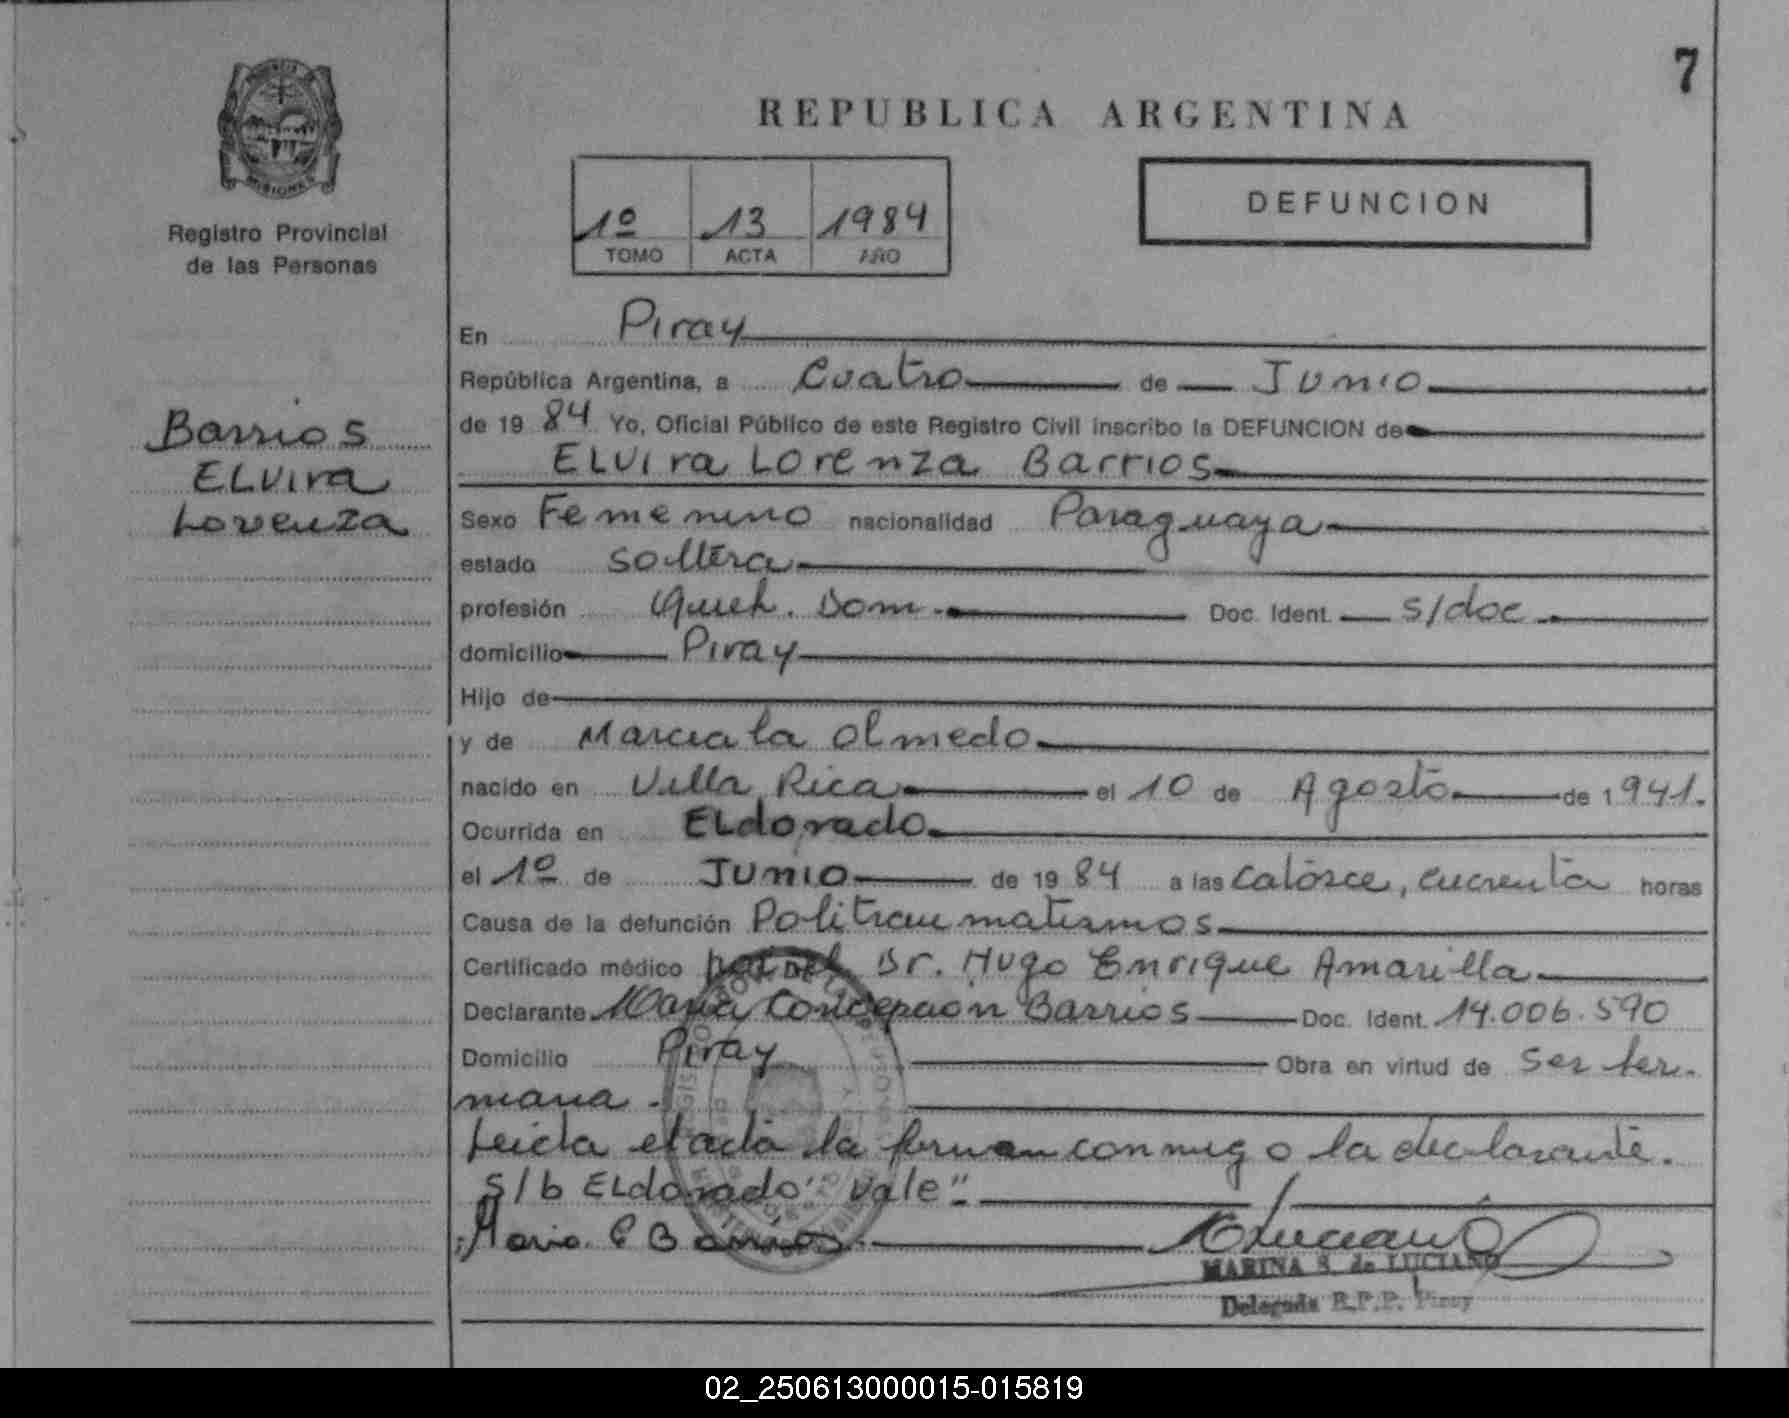 7
REPUBLICA ARGENTINA
PROVINCIA DE
MISIONES
Registro Provincial
de las Personas
1º 13 1984
TOMO ACTA AÑO
DEFUNCION
Barrios
ELvira
Lorenza
En Piray
República Argentina, a Cuatro de Junio
de 19 84 Yo, Oficial Público de este Registro Civil inscribo la DEFUNCION de
ELvira Lorenza Barrios
Sexo Femenino nacionalidad Paraguaya
estado soltera
profesión Queh. Dom. Doc. Ident. s/doc.
domicilio Piray
Hijo de
y de Marciala Olmedo
nacido en Villa Rica el 10 de Agosto de 1941.
Ocurrida en ELdorado
el 1º de Junio de 19 84 a las Catorce, cucuenta horas
Causa de la defunción Politraumatismos
Certificado médico Dr. Hugo Enrique Amarilla
Declarante Maria Concepcion Barrios Doc. Ident. 14.006.590
Domicilio Piray Obra en virtud de ser her-
mana.
Leida el acta la firman conmigo la declarante.
S/b ELdorado "vale"
Maria C Barrios
MARINA S. de LUCIANO
Delegada R.P.P. Piray
02_250613000015-015819